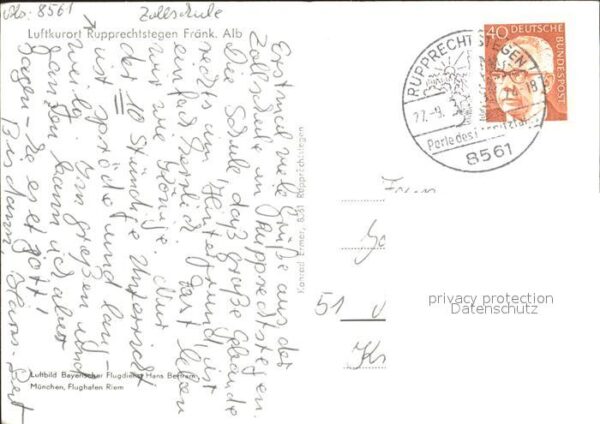 Abs: 8561
Zollschule
Luftkurort Rupprechtstegen Fränk. Alb
Erstmal viele Grüße aus der
Zollschule in Rupprechtstegen.
Die Schule, das große Gebäude
rechts im Hintergrund, ist
einfach herrlich. Fast leben
wir wie Könige. Nur
der 10 Stündige Unterricht
ist spröde und lang-
weilig. Im großen und
ganzen kann ich aber
sagen
Bis dann,
Luftbild Bayerischer Flugdienst Hans Bertram
München, Flughafen Riem
Konrad Ermer, 8561 Rupprechtstegen
RUPPRECHTSTEGEN
22.-9.
-18
Perle des
8561
40 DEUTSCHE BUNDESPOST
51
privacy protection
Datenschutz